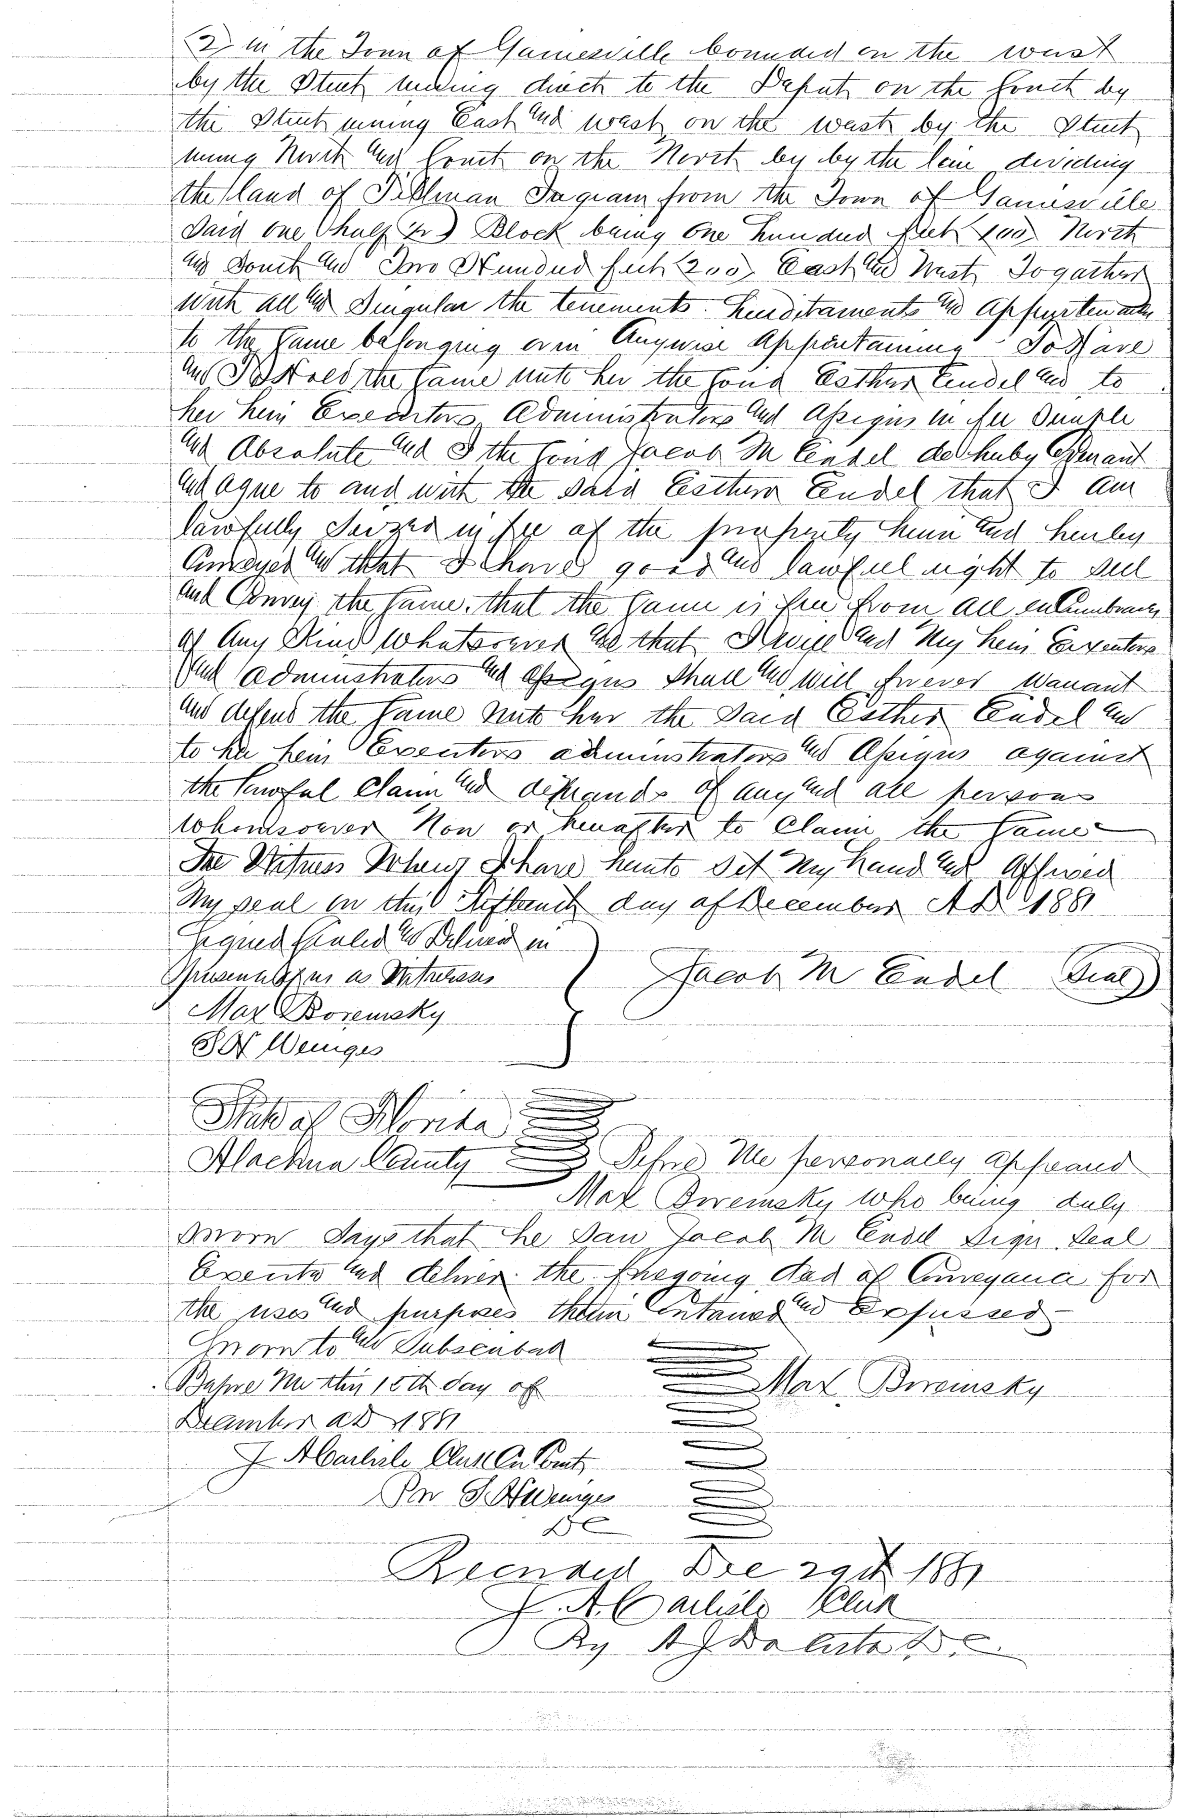 (2) in the Town of Gainesville bounded on the west
by the Street running direct to the Depot on the South by
the Street running East and west on the west by the Street
running North and South on the North by by the line dividing
the land of Tillman Ingram from the Town of Gainesville
Said one half Block being One hundred feet (100) North
and South and Two Hundred feet (200) East and West Together
with all and Singular the tenements hereditaments and Appurtenances
to the Same belonging or in Anywise Appertaining To Have
and To Hold the Same unto her the Said Esther Endel and to
her heirs Executors Administrators and Assigns in fee Simple
and Absolute and I the Said Jacob M Endel do hereby Covenant
and agree to and with the Said Esther Endel that I am
lawfully Seized in fee of the property herein and hereby
Conveyed and that I have good and lawful right to Sell
and Convey the Same. that the Same is free from all encumbrances
of Any Kind Whatsoever and that I will and My heirs Executors
and administrators and Assigns Shall and will forever warrant
and defend the Same unto her the Said Esther Endel and
to her heirs Executors administrators and Assigns against
the lawful Claim and demands of any and all persons
whomsoever Now or hereafter to Claim the Same
In Witness Whereof I have hereunto Set My hand and Affixed
My seal on this Fifteenth day of December A D 1881
Signed Sealed and Delivered in
presence of us as Witnesses
Jacob M Endel (Seal)
Max Boremsky
S H Wienges
State of Florida
Alachua County Before Me personally appeared
Max Boremsky who being duly
sworn Says that he Saw Jacob M Endel Sign. Seal
Execute and deliver the foregoing deed of Conveyance for
the uses and purposes therein Contained and Expressed
Sworn to and Subscribed
Before Me this 15th day of Max Boremsky
December A D 1881
J A Carlisle Clerk Cir Court
Per S H Wienges
D C
Recorded Dec 29th 1881
J. A. Carlisle Clerk
By A J DaCosta D. C.